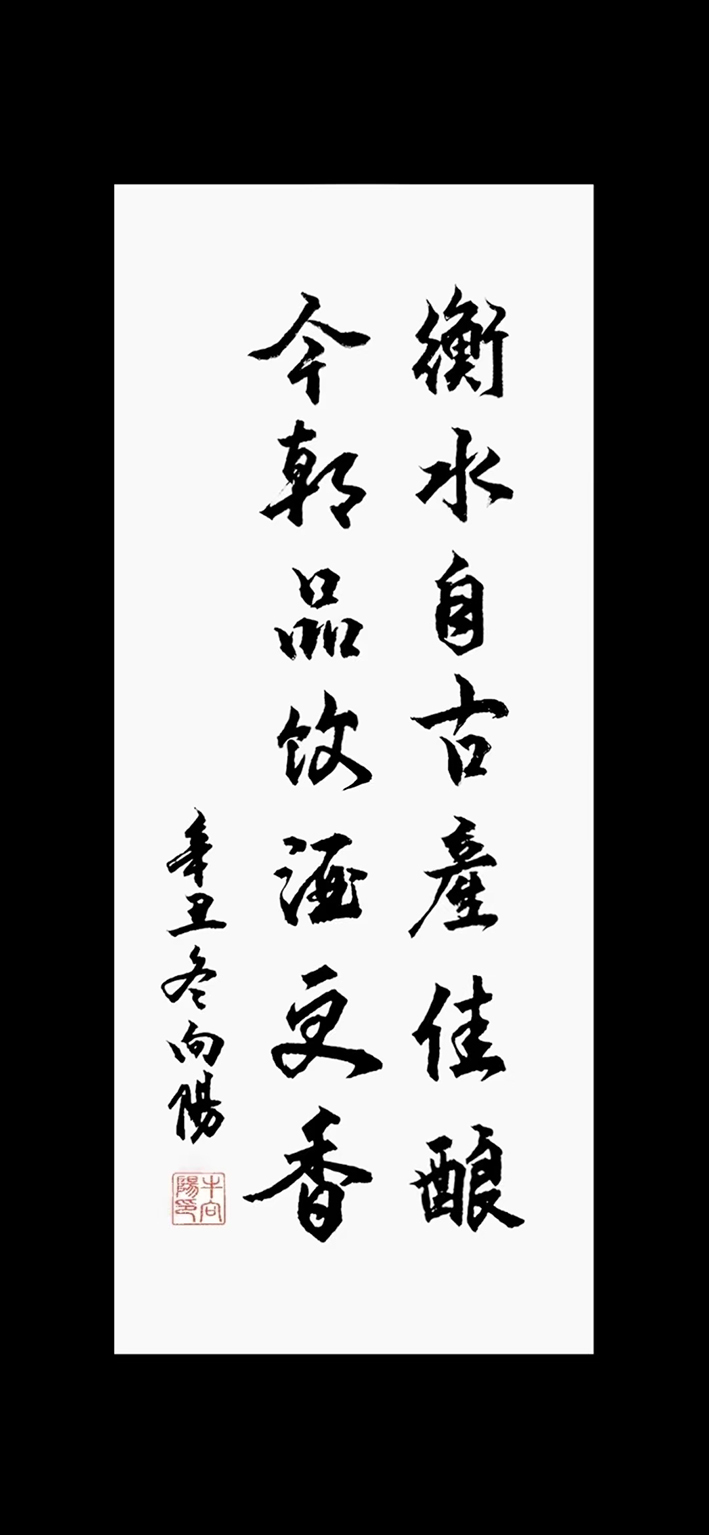 衡水自古產佳酿
今朝品饮酒更香
辛丑冬向陽
牛向陽印